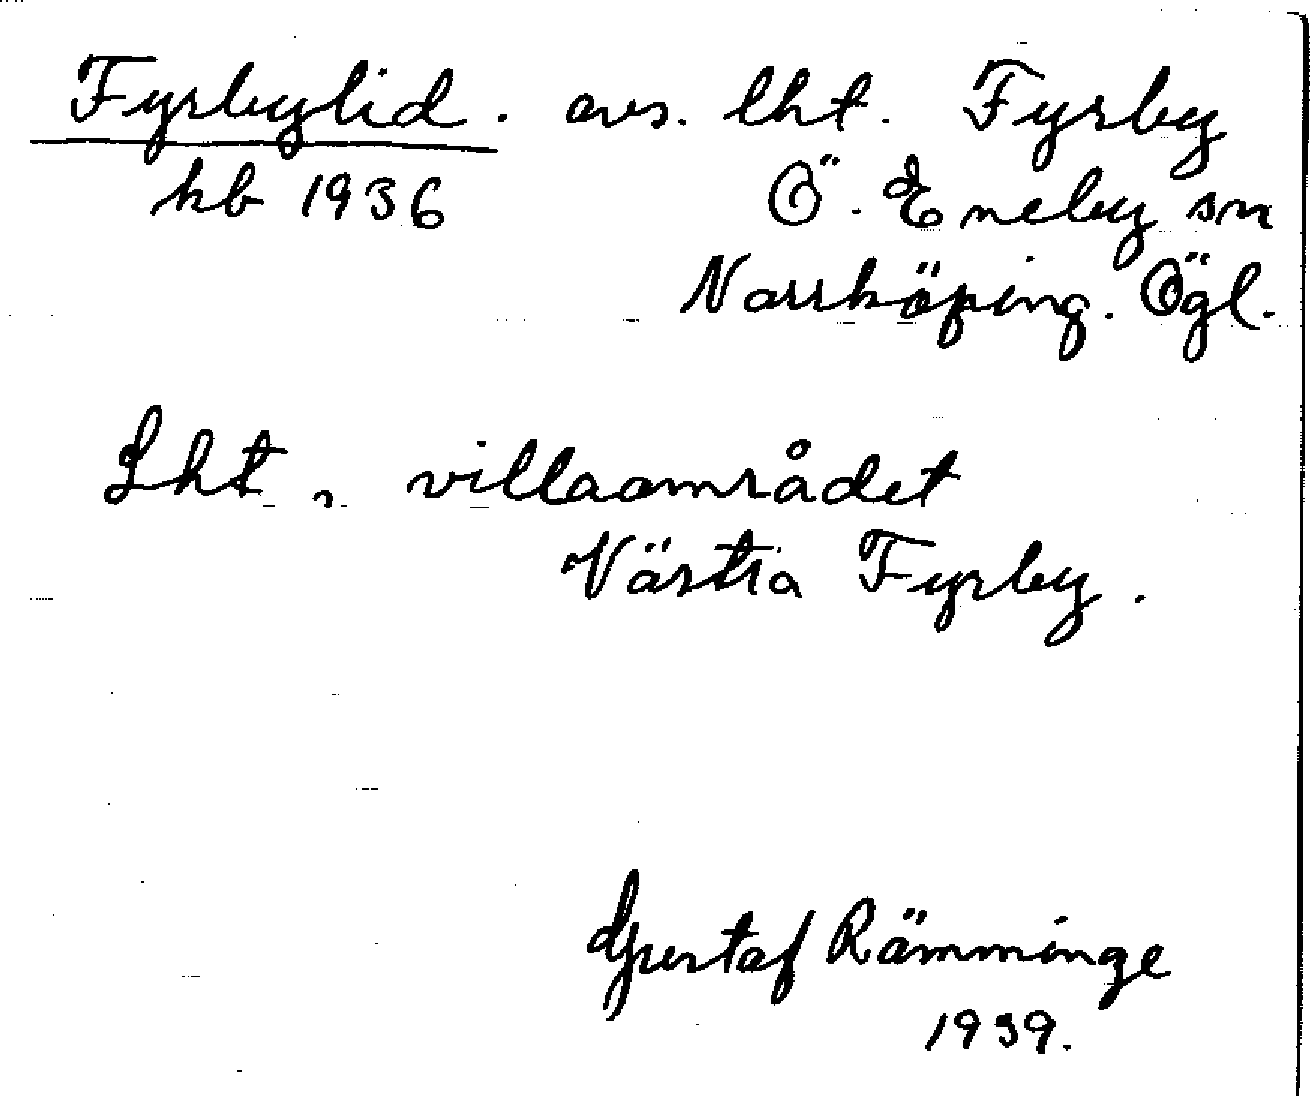 Fyrbylid. avs. lht. Fyrby
kb 1936 Ö. Eneby sn
Norrköping. Ögl.
Lht, villaområdet
Västra Fyrby.
Gustaf Rämminge
1939.